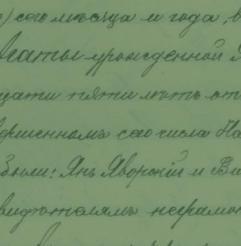 ) сего мѣсяца и года, в
Агаты урожденной Я
цати пяти лѣтъ от
вершеннымъ сего числа На
были: Янъ Яворскій и Ви
видѣтелямъ неграмот